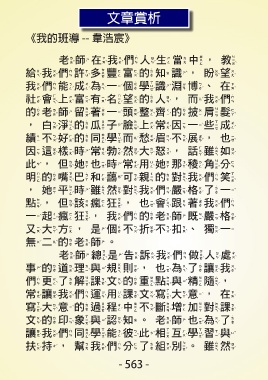 文章賞析
《我的班導 -- 韋浩宸》
老師在我們人生當中，教
給我們許多豐富的知識，盼望
我們能成為一個學識淵博、在
社會上富有名望的人，而我們
的老師留著一頭整齊的披肩髮
，白淨的瓜子臉上常因一些成
績不好的同學而愁眉不展，也
因這樣時常勃然大怒，話雖如
此，但她也時常用她那稜角分
明的嘴巴和藹可親的對我們笑
，她平時雖然對我們嚴格了一
點，但該瘋狂，也會跟著我們
一起瘋狂，我們的老師既嚴格
又大方，是個不折不扣、獨一
無二的老師。
老師總是告訴我們做人處
事的道理與規則，也為了讓我
們更了解課文的重點與精隨，
常讓我們運用課文寫大意，在
寫大意的過程中不斷增加對課
文的印象與認知。老師也為了
讓我們同學能彼此相互學習與
扶持，幫我們分了組別。雖然
- 563 -